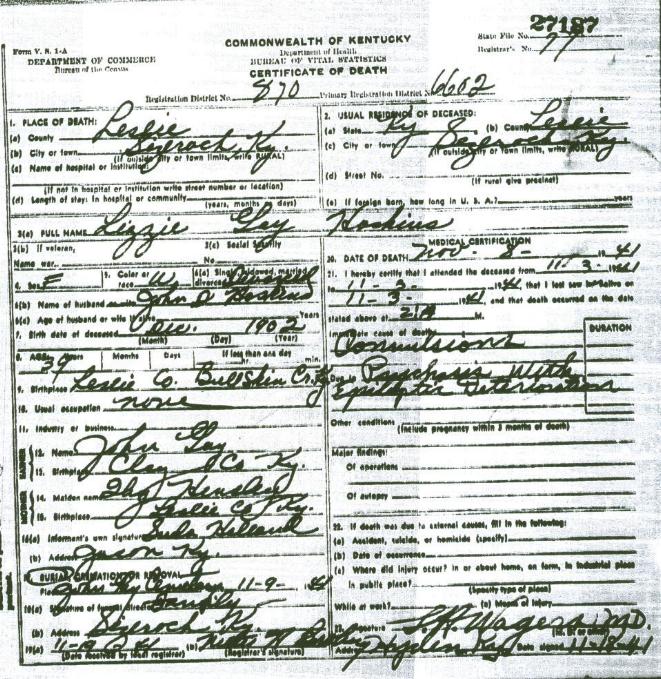 27187
Form V. S. 1-A
DEPARTMENT OF COMMERCE
Bureau of the Census
COMMONWEALTH OF KENTUCKY
Department of Health
BUREAU OF VITAL STATISTICS
CERTIFICATE OF DEATH
State File No.
Registrar's No. 77
Registration District No. 870 Primary Registration District No. 6602
1. PLACE OF DEATH:
(a) County Leslie
(b) City or town Sizerock, Ky.
(If outside city or town limits, write RURAL)
(c) Name of hospital or institution
(If not in hospital or institution write street number or location)
(d) Length of stay: In hospital or community
(years, months or days)
2. USUAL RESIDENCE OF DECEASED:
(a) State Ky (b) County Leslie
(c) City or town Sizerock Ky.
(If outside city or town limits, write RURAL)
(d) Street No.
(If rural give precinct)
(e) If foreign born, how long in U. S. A.? years
3(a) FULL NAME Lizzie Gay Hoskins
3(b) If veteran,
Name war
3(c) Social Security
No.
4. Sex F 5. Color or race W 6(a) Single, widowed, married, divorced
6(b) Name of husband or wife John D Hoskins
6(c) Age of husband or wife if alive years
7. Birth date of deceased Dec. 1902
(Month) (Day) (Year)
8. AGE: Years 39 Months Days If less than one day
hr. min.
9. Birthplace Leslie Co. Bullskin Cr. Ky
10. Usual occupation none
11. Industry or business
FATHER
12. Name John Gay
13. Birthplace Clay Co Ky.
MOTHER
14. Maiden name Hensley
15. Birthplace Leslie Co Ky.
16(a) Informant's own signature
(b) Address Jason Ky.
BURIAL, CREMATION OR REMOVAL
Place 11-9- 1941
18(a) Signature of funeral director Family
(b) Address Sizerock, Ky.
19(a)
(Date received by local registrar) (Registrar's signature)
MEDICAL CERTIFICATION
20. DATE OF DEATH Nov - 8 - 1941
21. I hereby certify that I attended the deceased from 11-3- 1941
to 11-3- 1941 that I last saw her alive on
11-3- 1941 and that death occurred on the date
stated above at M.
Immediate cause of death
Convulsions
DURATION
Due to Psychosis With
Epileptic Deterioration
Other conditions
(Include pregnancy within 3 months of death)
Major findings:
Of operations
Of autopsy
22. If death was due to external causes, fill in the following:
(a) Accident, suicide, or homicide (specify)
(b) Date of occurrence
(c) Where did injury occur? In or about home, on farm, in industrial place
in public place?
(Specify type of place)
While at work? (e) Means of injury
23. Signature Wagers M.D.
Address Hyden Ky Date signed 11-18-41